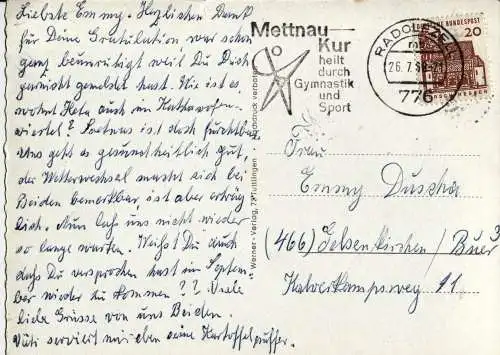 Liebste Emmy, Herzlichen Dank
für Deine Gratulation war schon
ganz beunruhigt weil Du Dich
garnicht gemeldet hast. Wie ist es,
wohnt Hela auch im
viertel? Partnus ist doch furchtbar
Uns geht es gesundheitlich gut,
der Wetterwechsel macht sich bei
Beiden bemerkbar, ist aber erträg
lich. Nun laß uns nicht wieder
so lange warten. Weißt Du auch
daß Du versprochen hast im Septem-
ber wieder zu kommen?? Viele
liebe Grüsse von uns Beiden.
Väti serviert mir eben seine Kartoffelpuffer.
Werner-Verlag, Tuttlingen
Nachdruck verboten
Mettnau-
Kur
heilt
durch
Gymnastik
und
Sport
RADOLFZELL
26.7.
776
BUNDESPOST
20
Frau
Emmy Duscha
(466) Gelsenkirchen / Buer
Halverkampsweg 11